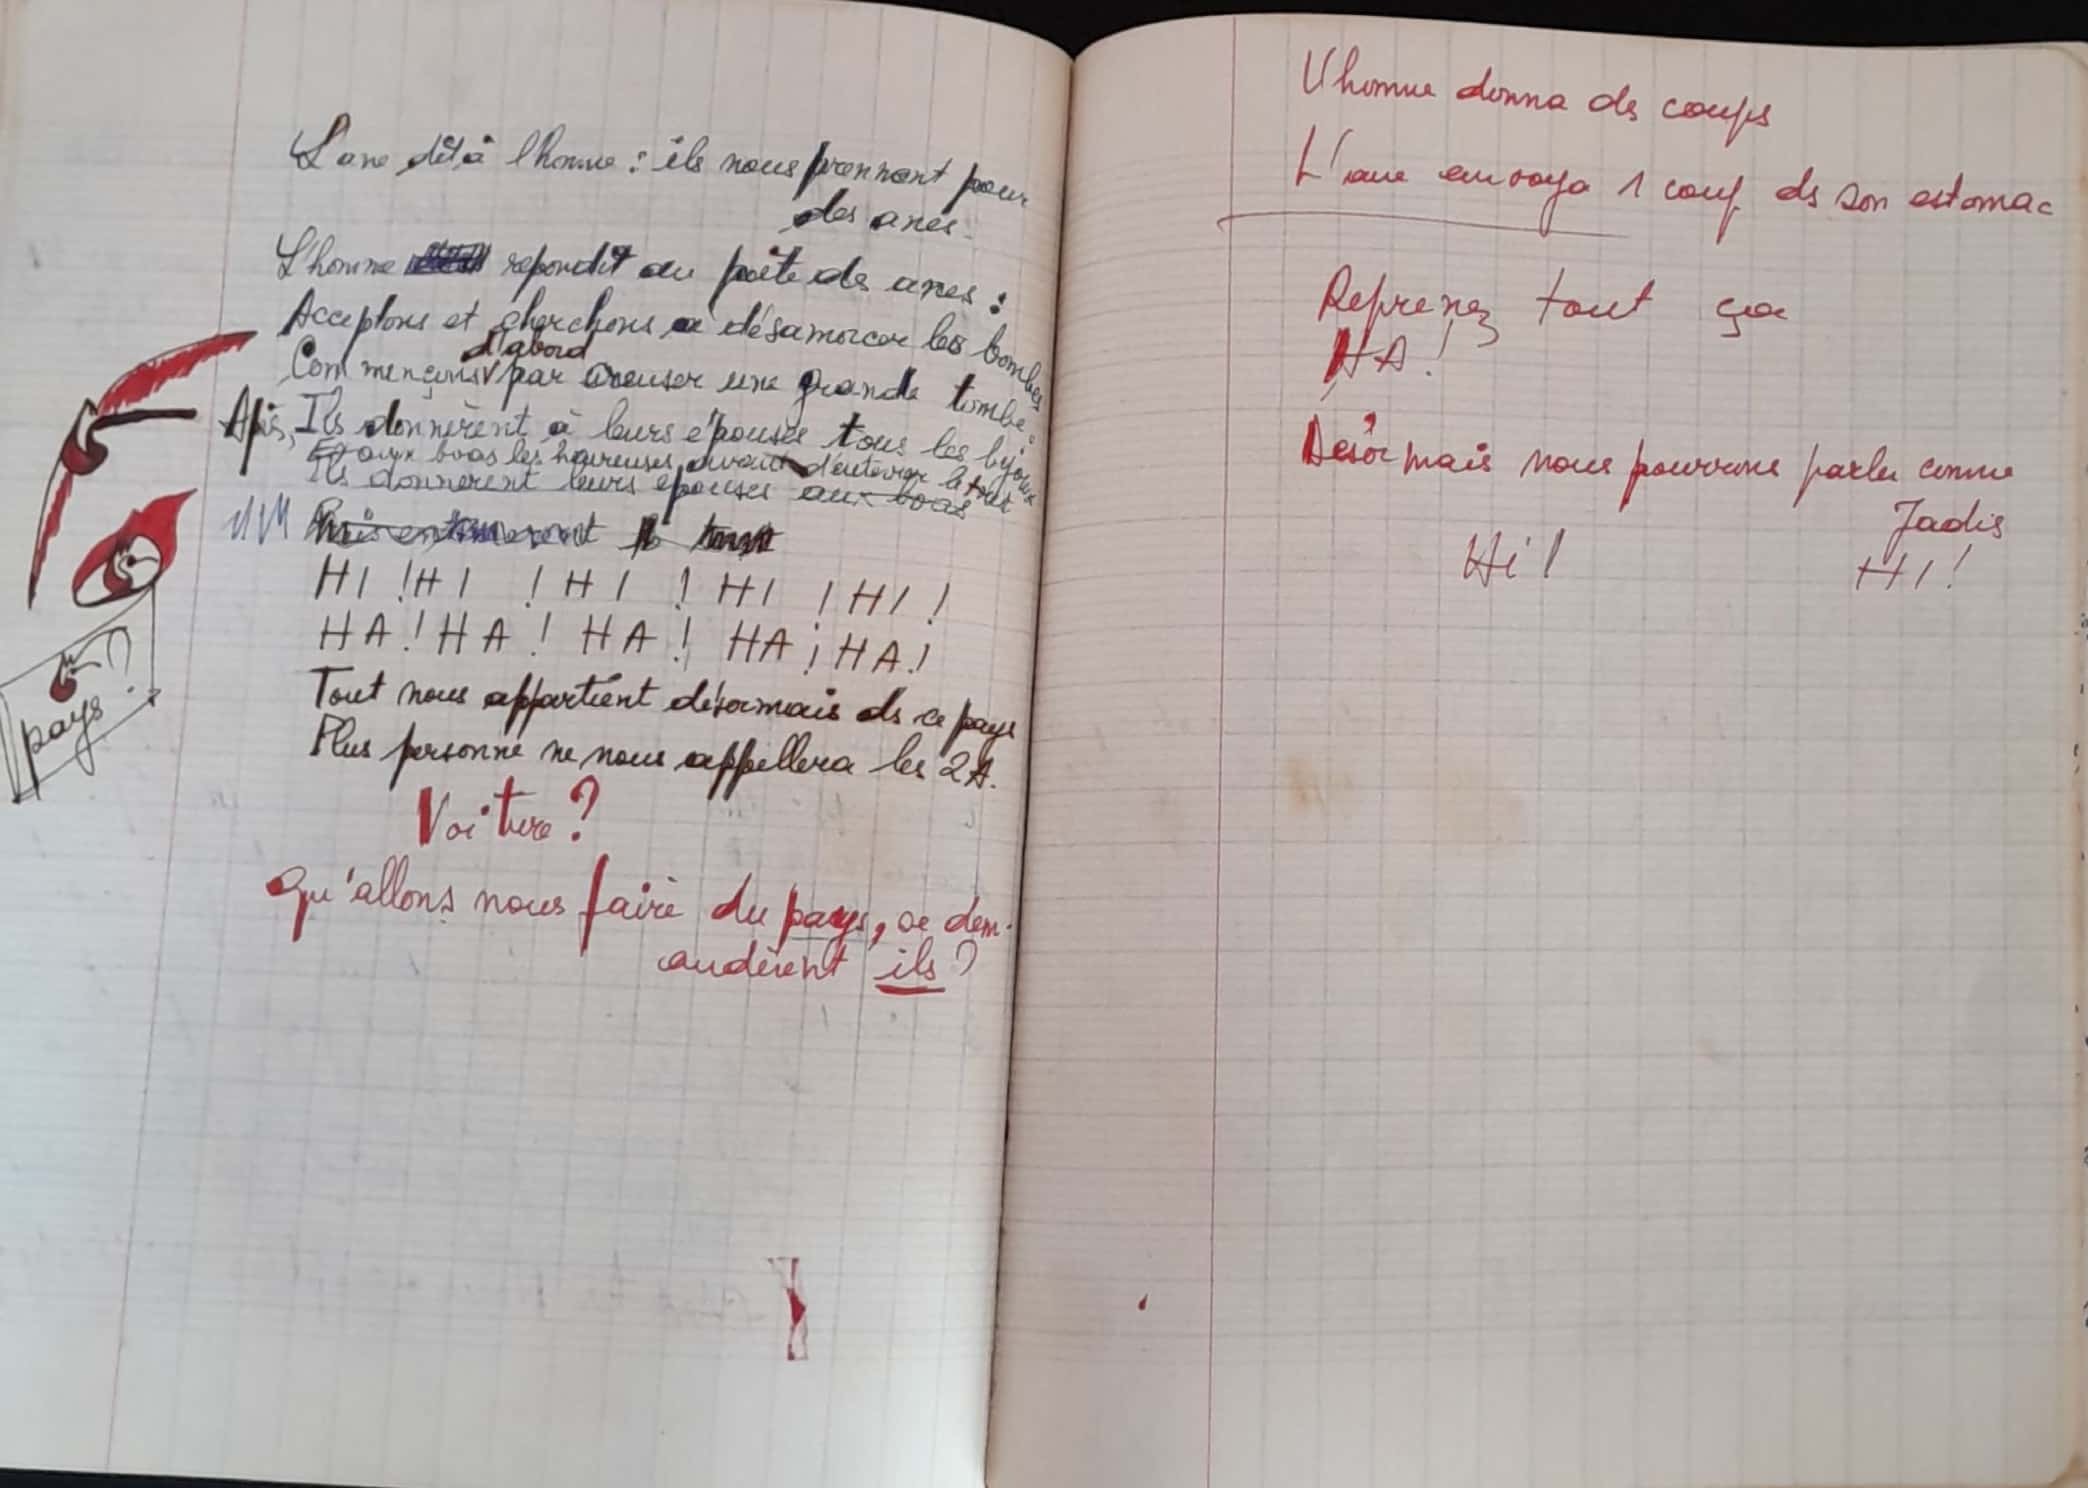 L'ane dit à l'homme : ils nous prennent pour
des anes.
L'homme repondit au poète des anes :
Acceptons et cherchons a désamorcer les bombes
d'abord
Commençons par creuser une grande tombe.
Après, Ils donnèrent à leurs épouses tous les bijoux
Et aux boas les heureuses avant d'enterrer le tout
Ils donnerent leurs épouses aux boas
Puis enterrerent le tout
HI ! HI ! HI ! HI ! HI !
HA ! HA ! HA ! HA ! HA !
Tout nous appartient désormais ds ce pays
Plus personne ne nous appellera les 2A.
pays ?
Voiture ?
Qu'allons nous faire du pays, se dem-
andèrent ils ?
L'homme donna des coups
L'ane envoya 1 coup ds son estomac
Reprenez tout ça
HA !
Désormais nous pourrons parler comme
Jadis
Hi ! HI !